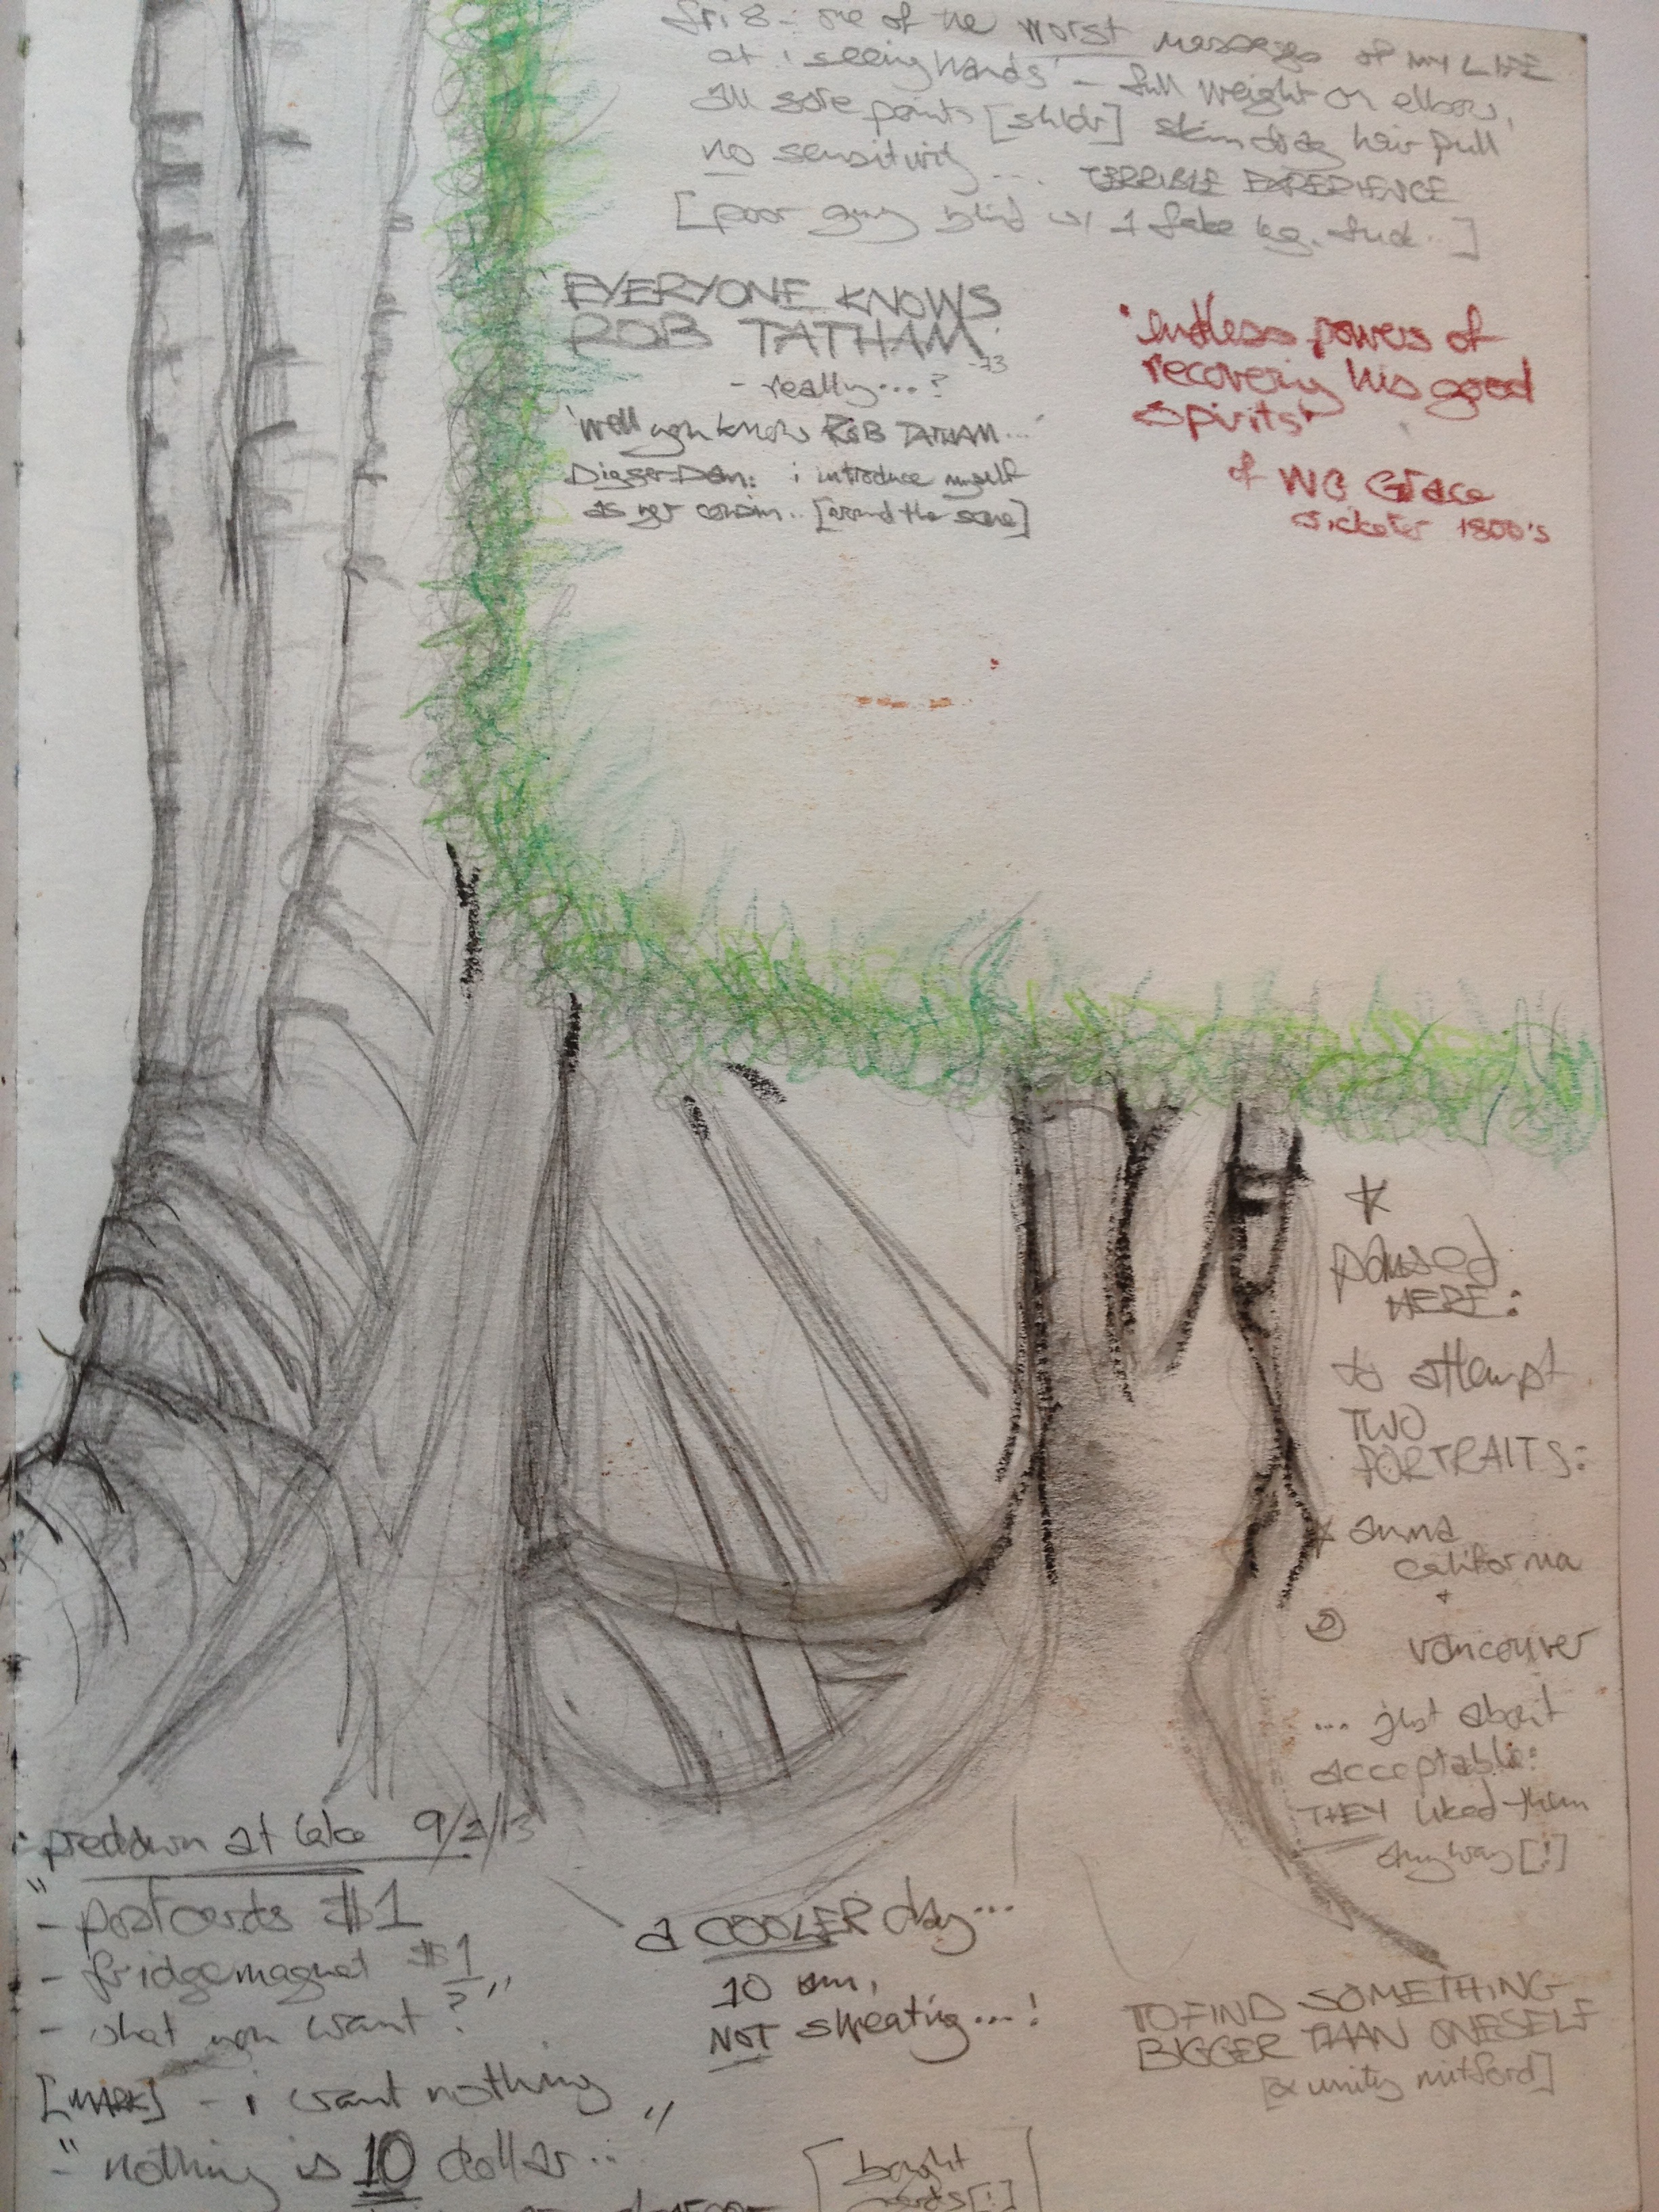 fri 8 - one of the worst massages of MY LIFE
at 'seeing hands' - full weight on elbow,
all sore points [shldr] skin drag hair pull
no sensitivity ... TERRIBLE EXPERIENCE
[poor guy blind w/ 1 fake leg. fuck..]
EVERYONE KNOWS
ROB TATHAM
- really...?
'well you know ROB TATHAM...
Digger Dan: i introduce myself
as yer cousin.. [around the same]
'endless powers of
recovering his good
spirits'
of WG Grace
cricketer 1800's
*
paused
HERE:
to attempt
TWO
PORTRAITS:
* anna
california
+
② vancouver
... just about
acceptable:
THEY liked them
anyway [!]
predawn at lake 9/2/13
" - postcards $1
- fridgemagnet $1
- what you want? "
[MARK] - i want nothing
- " nothing is 10 dollar... "
a COOLER day...
10 am,
NOT sweating...!
TO FIND SOMETHING
BIGGER THAN ONESELF
[unity mitford]
[bought
cards [!]